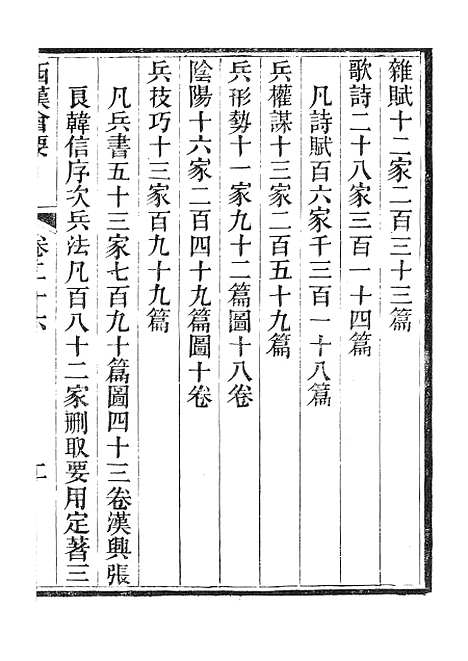 雜賦十二家二百三十三篇
歌詩二十八家三百一十四篇
凡詩賦百六家千三百一十八篇
兵權謀十三家二百五十九篇
兵形勢十一家九十二篇圖十八卷
陰陽十六家二百四十九篇圖十卷
兵技巧十三家百九十九篇
凡兵書五十三家七百九十篇圖四十三卷漢興張
良韓信序次兵法凡百八十二家刪取要用定著三
西漢會要
卷二十六
二